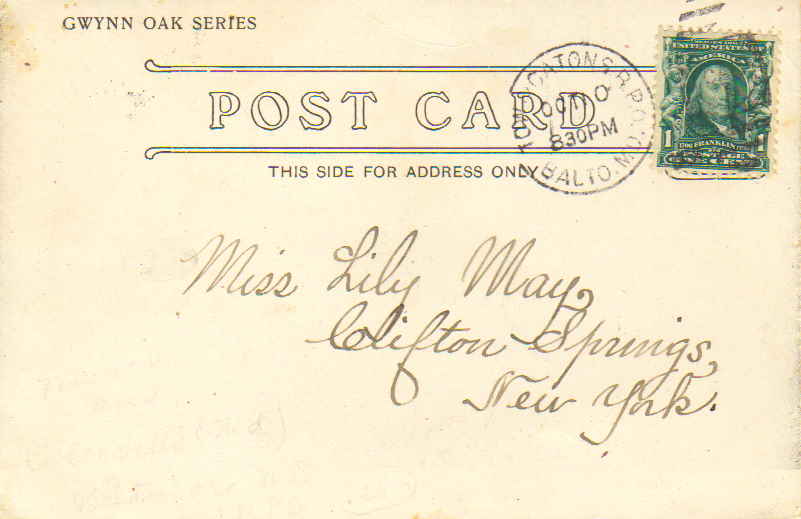 GWYNN OAK SERIES
POST CARD
THIS SIDE FOR ADDRESS ONLY
TOW. & CATONS. R.P.O.
OCT
830PM
BALTO. MD.
UNITED STATES OF
AMERICA
1 1
FRANKLIN
ONE CENT
Miss Lily May,
Clifton Springs,
New York.